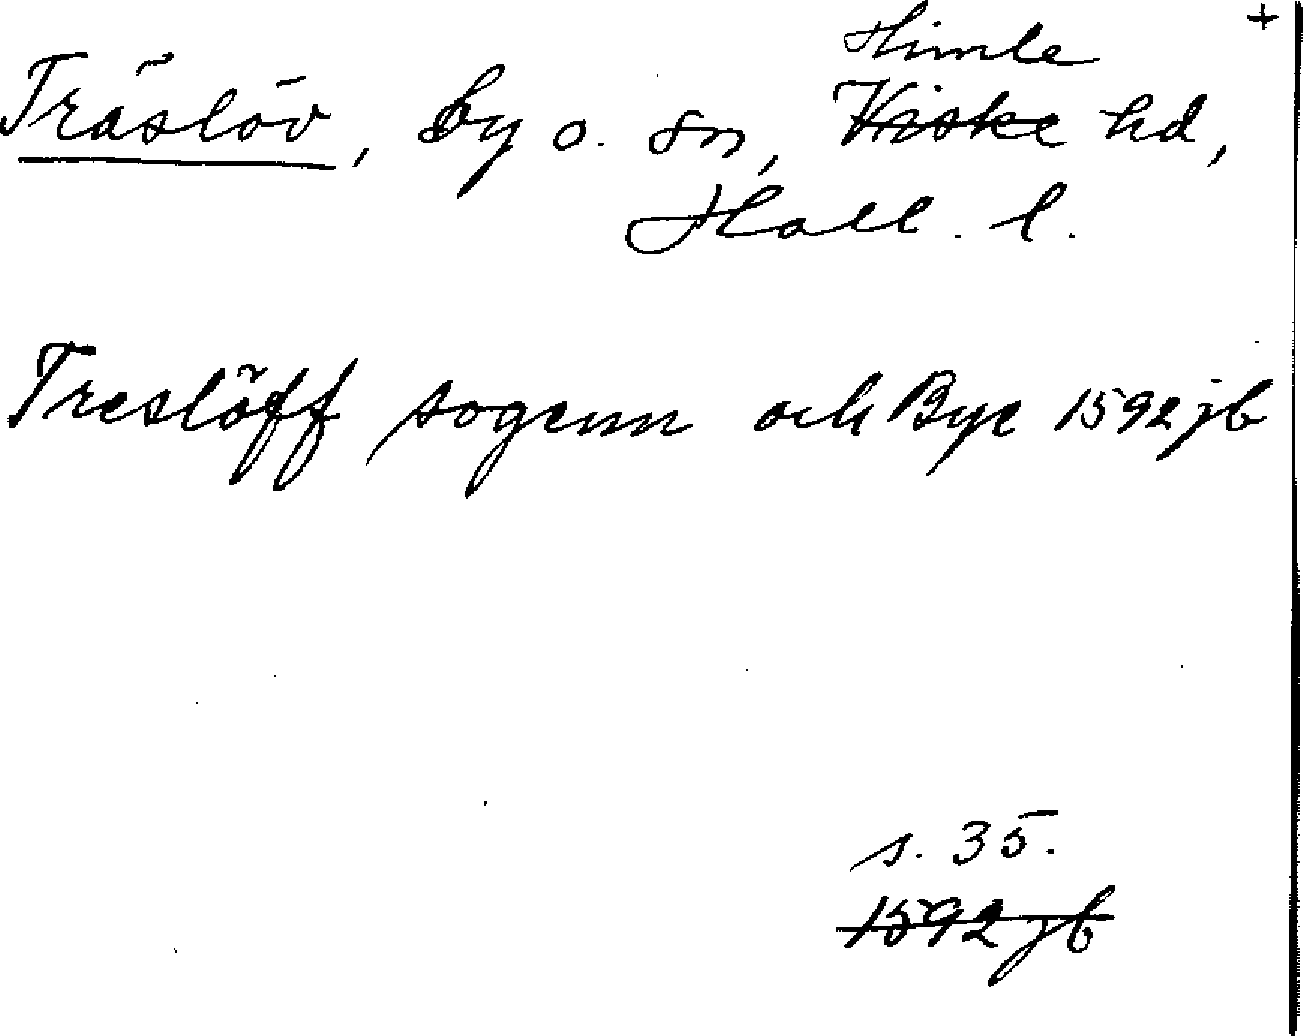 Himle +
Träslöv, by o. sn, Viske hd,
Hall. l.
Treslöff sogenn och Bye 1592 jb
s. 35.
1592 jb